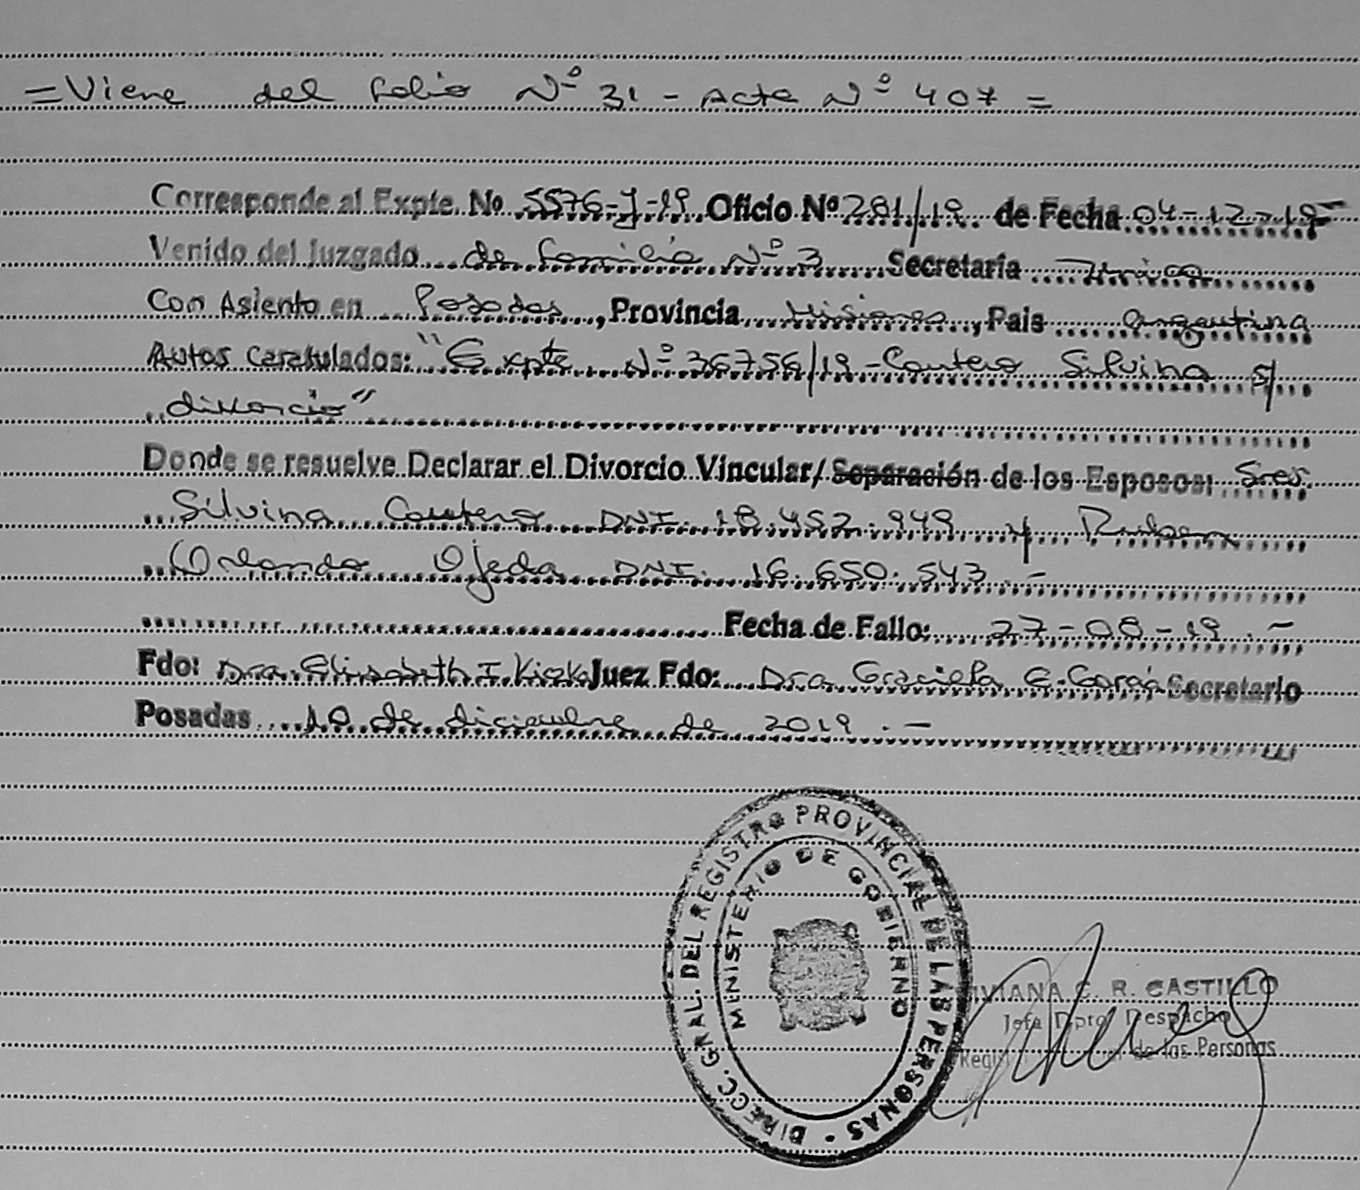 =Viene del folio Nº 31 - Acta Nº 407 =
Corresponde al Expte. No 5576-J-19 Oficio Nº 281/19 de Fecha 04-12-19
Venido del Juzgado de Familia Nº 3 Secretaría Única
Con Asiento en Posadas, Provincia Misiones, Pais Argentina
Autos Caratulados: "Expte Nº 36756/19 - Cantero Silvina s/
divorcio"
Donde se resuelve Declarar el Divorcio Vincular/ Separación de los Esposos: Sres.
Silvina Cantero DNI. 18.452.949 y Ruben
Orlando Ojeda DNI. 16.650.543.-
Fecha de Fallo: 27-08-19.-
Fdo: Dra. Elisabeth I. Juez Fdo: Dra Graciela E. Secretario
Posadas 10 de diciembre de 2019.-
DIRECC. GRAL. DEL REGISTRO PROVINCIAL DE LAS PERSONAS
MINISTERIO DE GOBIERNO
VIVIANA C. R. CASTILLO
Jefa Dpto. Despacho
de las Personas